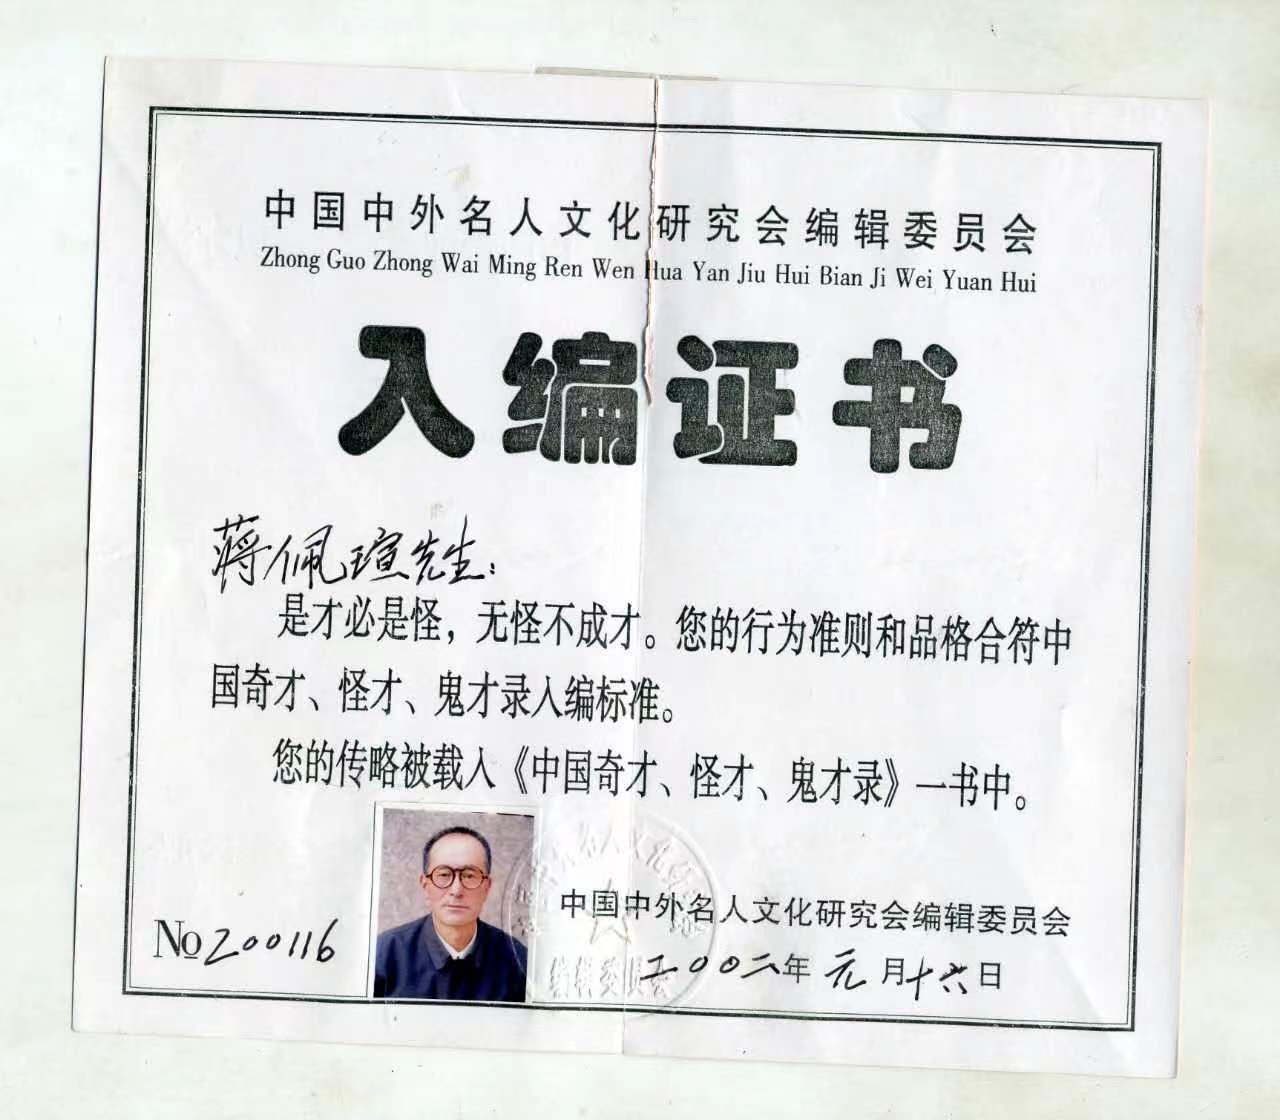 中国中外名人文化研究会编辑委员会
Zhong Guo Zhong Wai Ming Ren Wen Hua Yan Jiu Hui Bian Ji Wei Yuan Hui
入编证书
蒋佩瑄先生：
是才必是怪，无怪不成才。您的行为准则和品格合符中
国奇才、怪才、鬼才录入编标准。
您的传略被载入《中国奇才、怪才、鬼才录》一书中。
中国中外名人文化研究会编辑委员会
№200116
二〇〇二年元月十六日
编辑委员会